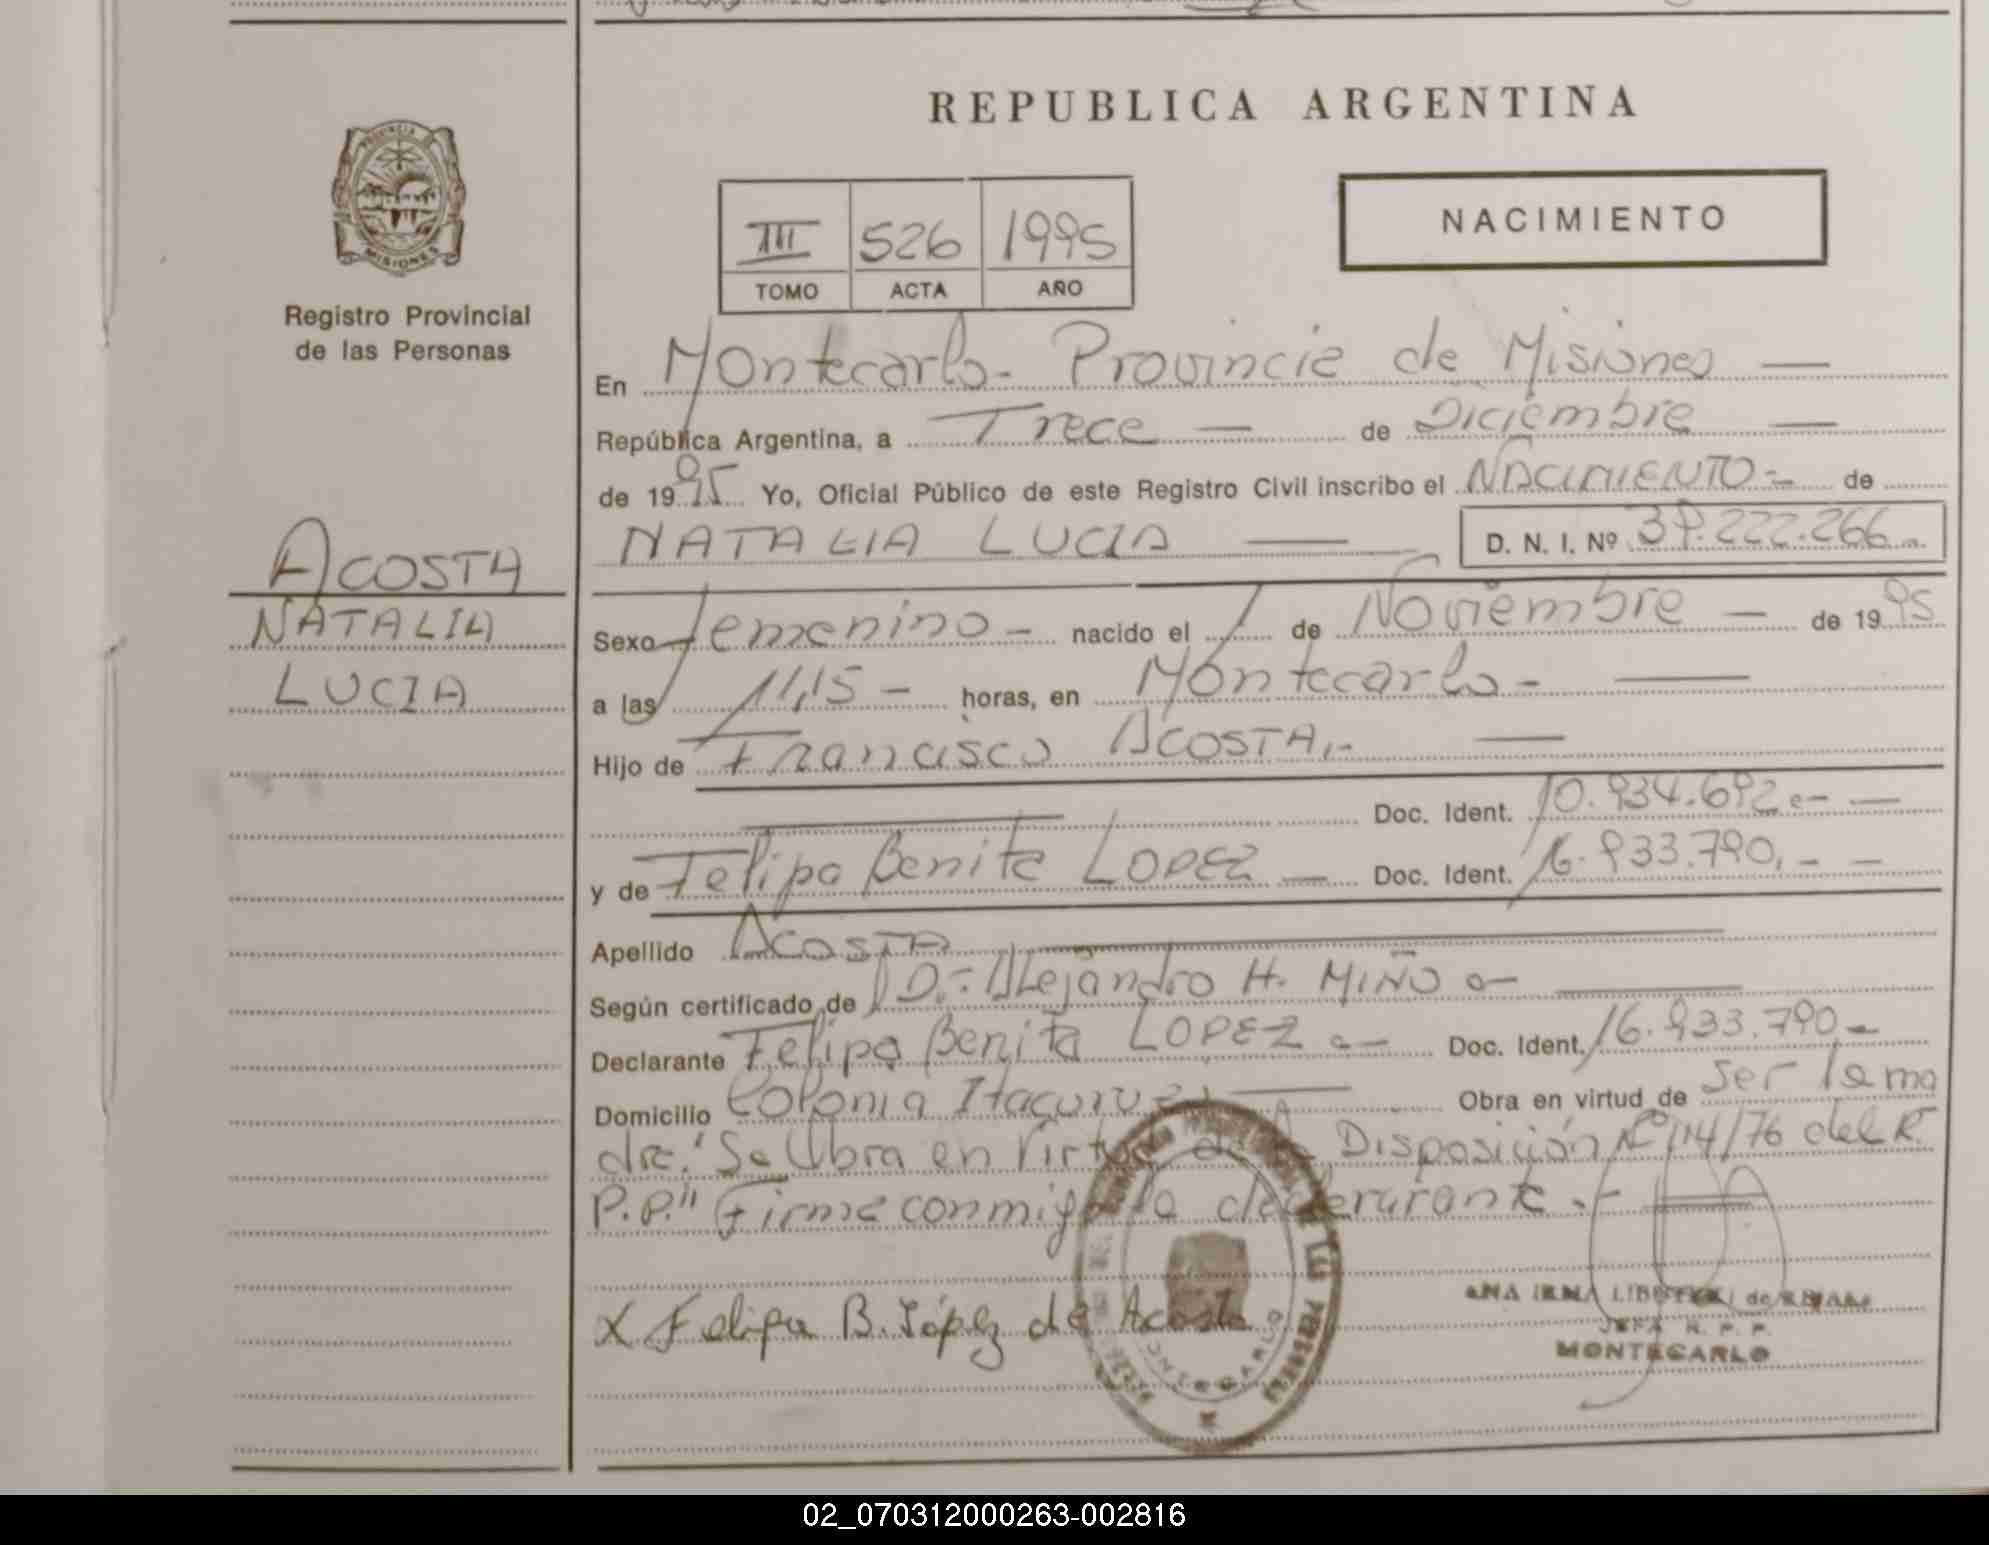 REPUBLICA ARGENTINA
PROVINCIA
MISIONES
Registro Provincial
de las Personas
III 526 1995
TOMO ACTA AÑO
NACIMIENTO
En Montecarlo- Provincia de Misiones —
República Argentina, a Trece — de Diciembre —
de 1995 Yo, Oficial Público de este Registro Civil inscribo el NACIMIENTO= de
NATALIA LUCIA — D. N. I. Nº 39.222.266
ACOSTA
NATALIA
LUCIA
Sexo femenino - nacido el 1 de Noviembre — de 1995
a las 11,15 - horas, en Montecarlo- —
Hijo de Francisco ACOSTA,- —
Doc. Ident. 10.934.692 —
y de Felipa Benita LOPEZ — Doc. Ident. 16.933.790,- —
Apellido ACOSTA
Según certificado de D.- Alejandro H. MIÑO —
Declarante Felipa Benita LOPEZ — Doc. Ident. 16.933.790-
Domicilio Colonia — Obra en virtud de Ser la ma
dre. "Se Obra en Virtud de Disposición Nº 114/76 del R.
P.P." Firma conmigo la declarante.-
X Felipa B. López de Acosta
ANA IRMA de
JEFA R. P. P.
MONTECARLO
MONTECARLO
02_070312000263-002816